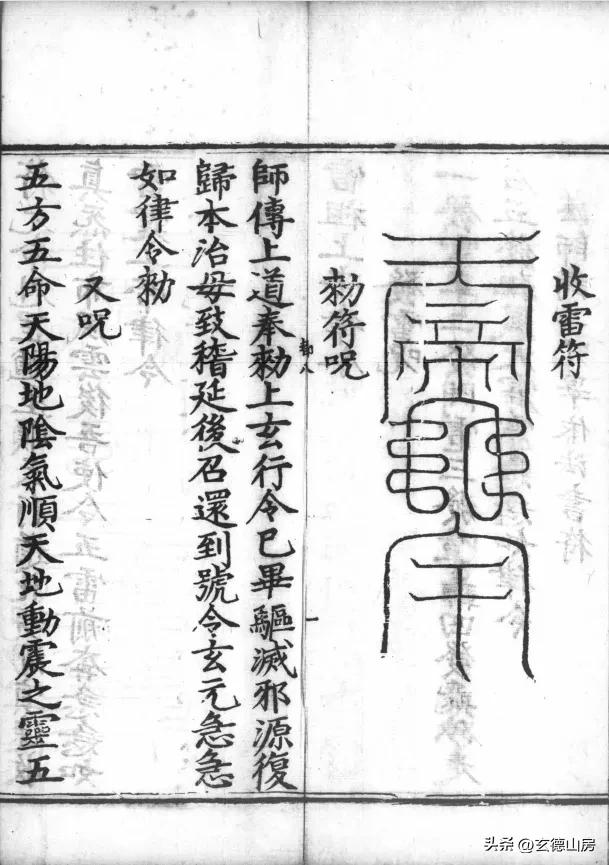 收雷符
勑符呪
師傳上道奉勑上玄行令已畢驅滅邪源復
歸本治毋致稽延後召還到號令玄元急急
如律令勑
又呪
五方五命天陽地陰氣順天地動震之靈五
头条 @玄德山房